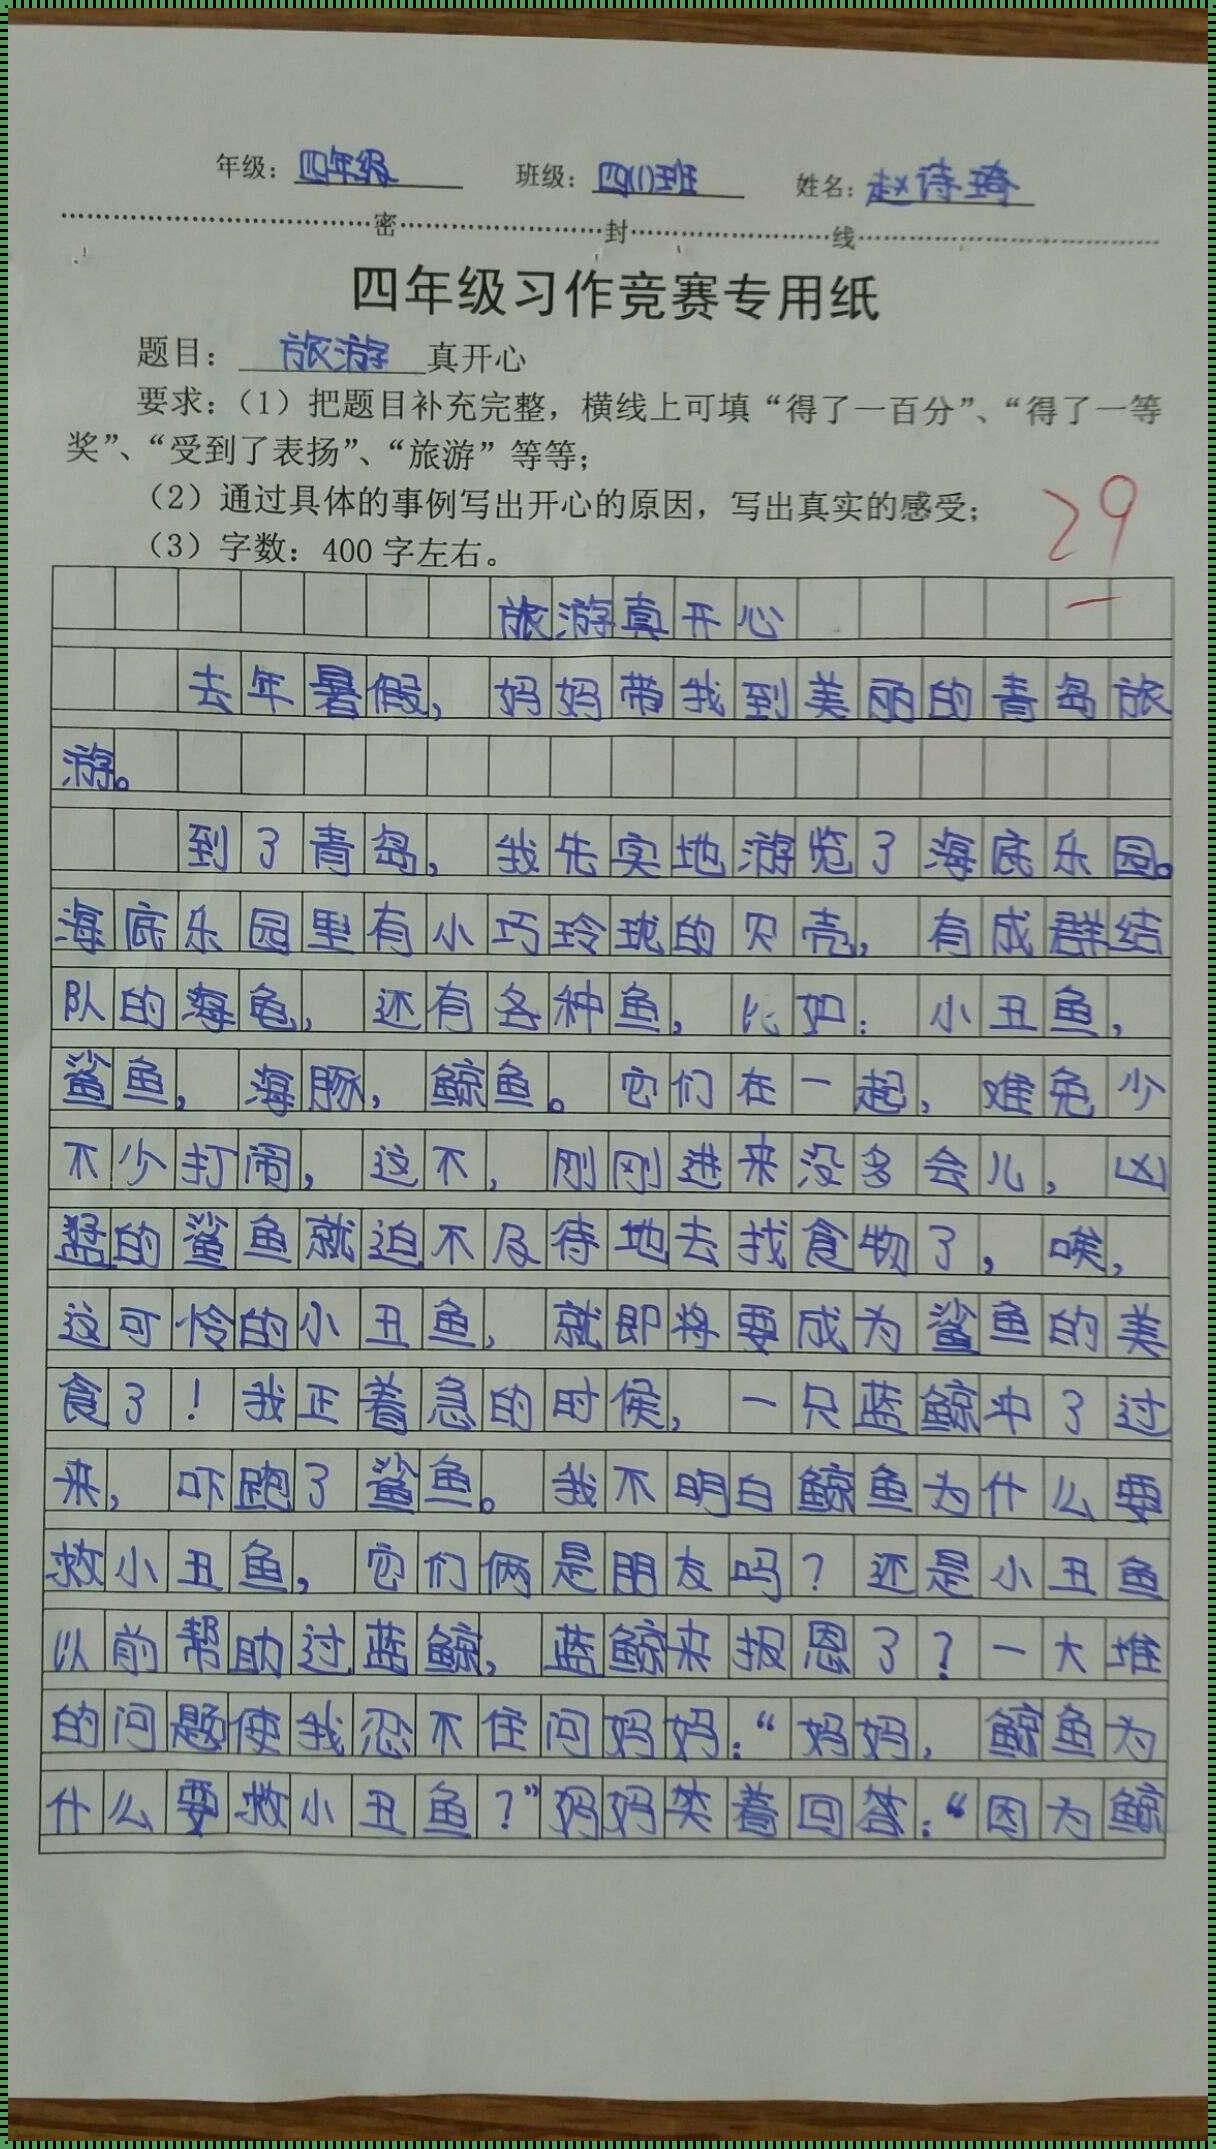 年级：四年级 班级：四(1)班 姓名：赵诗琦
密 封 线
四年级习作竞赛专用纸
题目：旅游真开心
要求：（1）把题目补充完整，横线上可填“得了一百分”、“得了一等
奖”、“受到了表扬”、“旅游”等等；
（2）通过具体的事例写出开心的原因，写出真实的感受；
（3）字数：400字左右。
29
旅游真开心
去年暑假，妈妈带我到美丽的青岛旅
游。
到了青岛，我先实地游览了海底乐园。
海底乐园里有小巧玲珑的贝壳，有成群结
队的海龟，还有各种鱼，比如：小丑鱼，
鲨鱼，海豚，鲸鱼。它们在一起，难免少
不少打闹，这不，刚刚进来没多会儿，凶
猛的鲨鱼就迫不及待地去找食物了，唉，
这可怜的小丑鱼，就即将要成为鲨鱼的美
食了！我正着急的时候，一只蓝鲸冲了过
来，吓跑了鲨鱼。我不明白鲸鱼为什么要
救小丑鱼，它们俩是朋友吗？还是小丑鱼
以前帮助过蓝鲸，蓝鲸来报恩了？一大堆
的问题使我忍不住问妈妈：“妈妈，鲸鱼为
什么要救小丑鱼？”妈妈笑着回答：“因为鲸